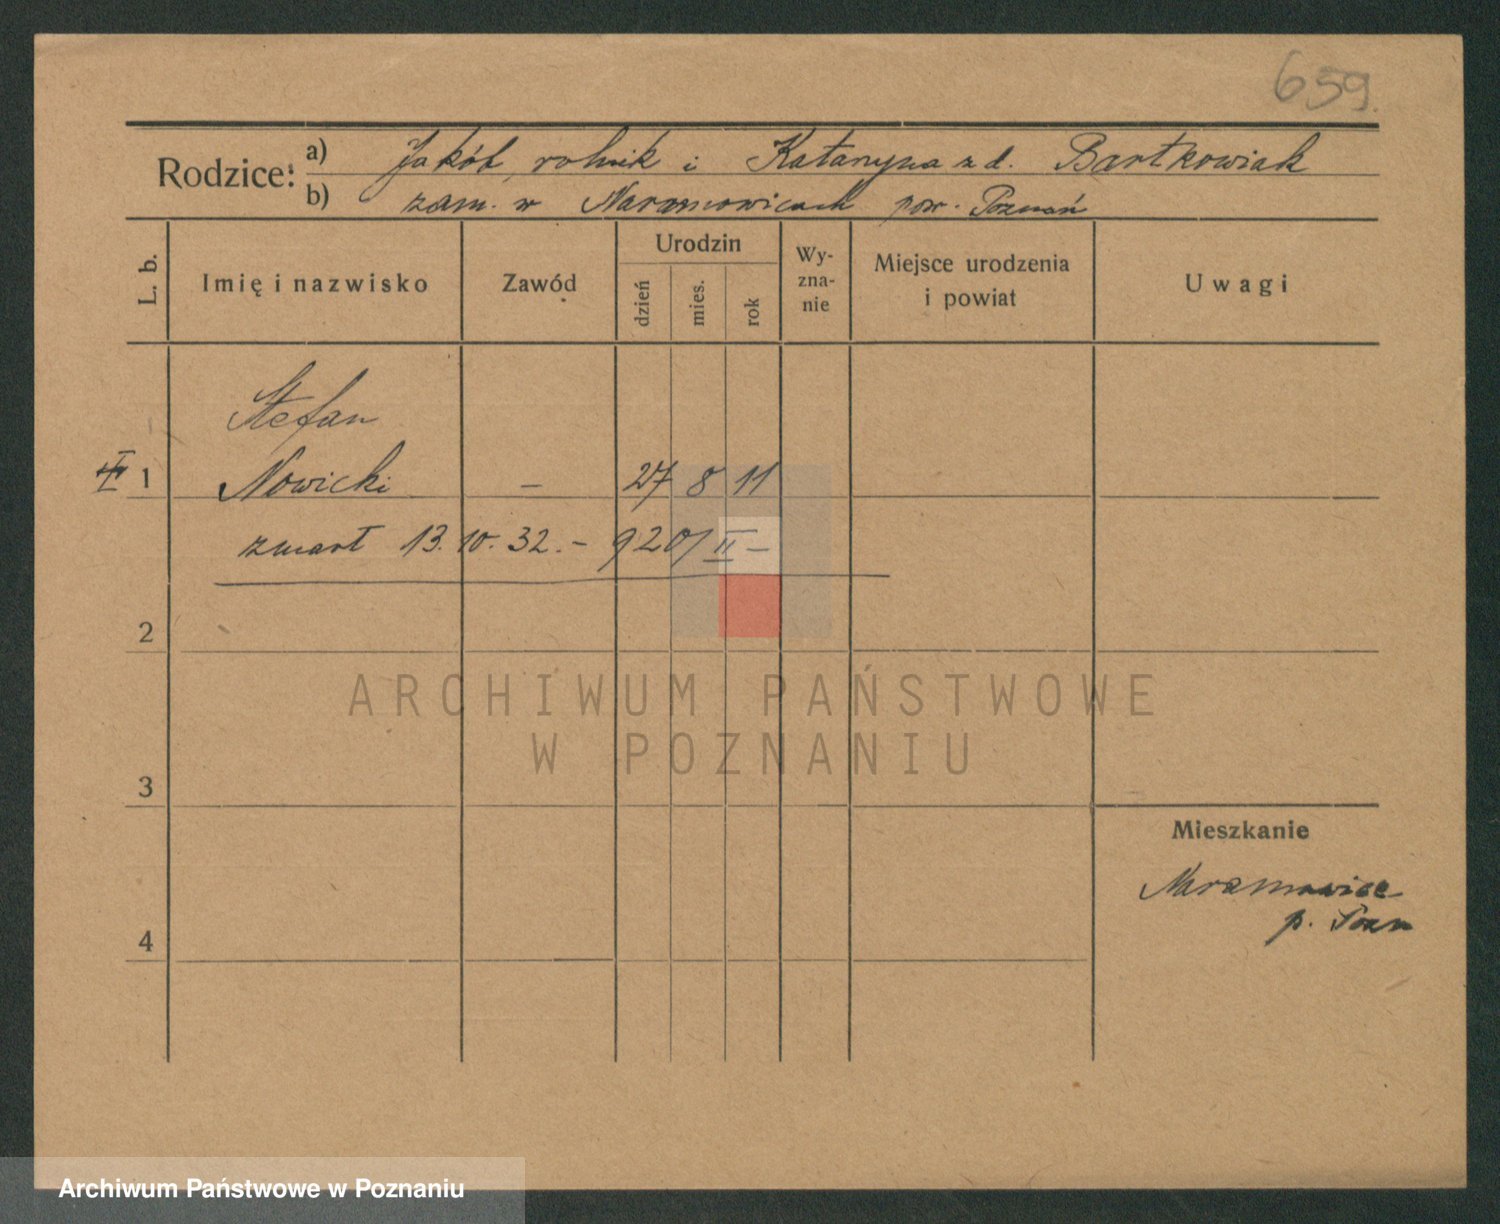 659.
Rodzice: a) Jakób, rolnik i Katarzyna z d. Bartkowiak
b) zam. w Naramowicach pow. Poznań
L. b.
Imię i nazwisko
Zawód
Urodzin
dzień
mies.
rok
Wy-
zna-
nie
Miejsce urodzenia
i powiat
Uwagi
Stefan
1 Nowicki – 27 8 11
zmarł 13. 10. 32. – 920/II –
2
3
4
Mieszkanie
Naramowice
p. Pozn
ARCHIWUM PAŃSTWOWE
W POZNANIU
Archiwum Państwowe w Poznaniu